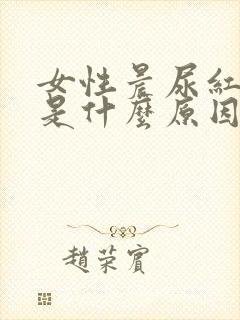 女性晨尿紅
是什麼原因
趙荣賓